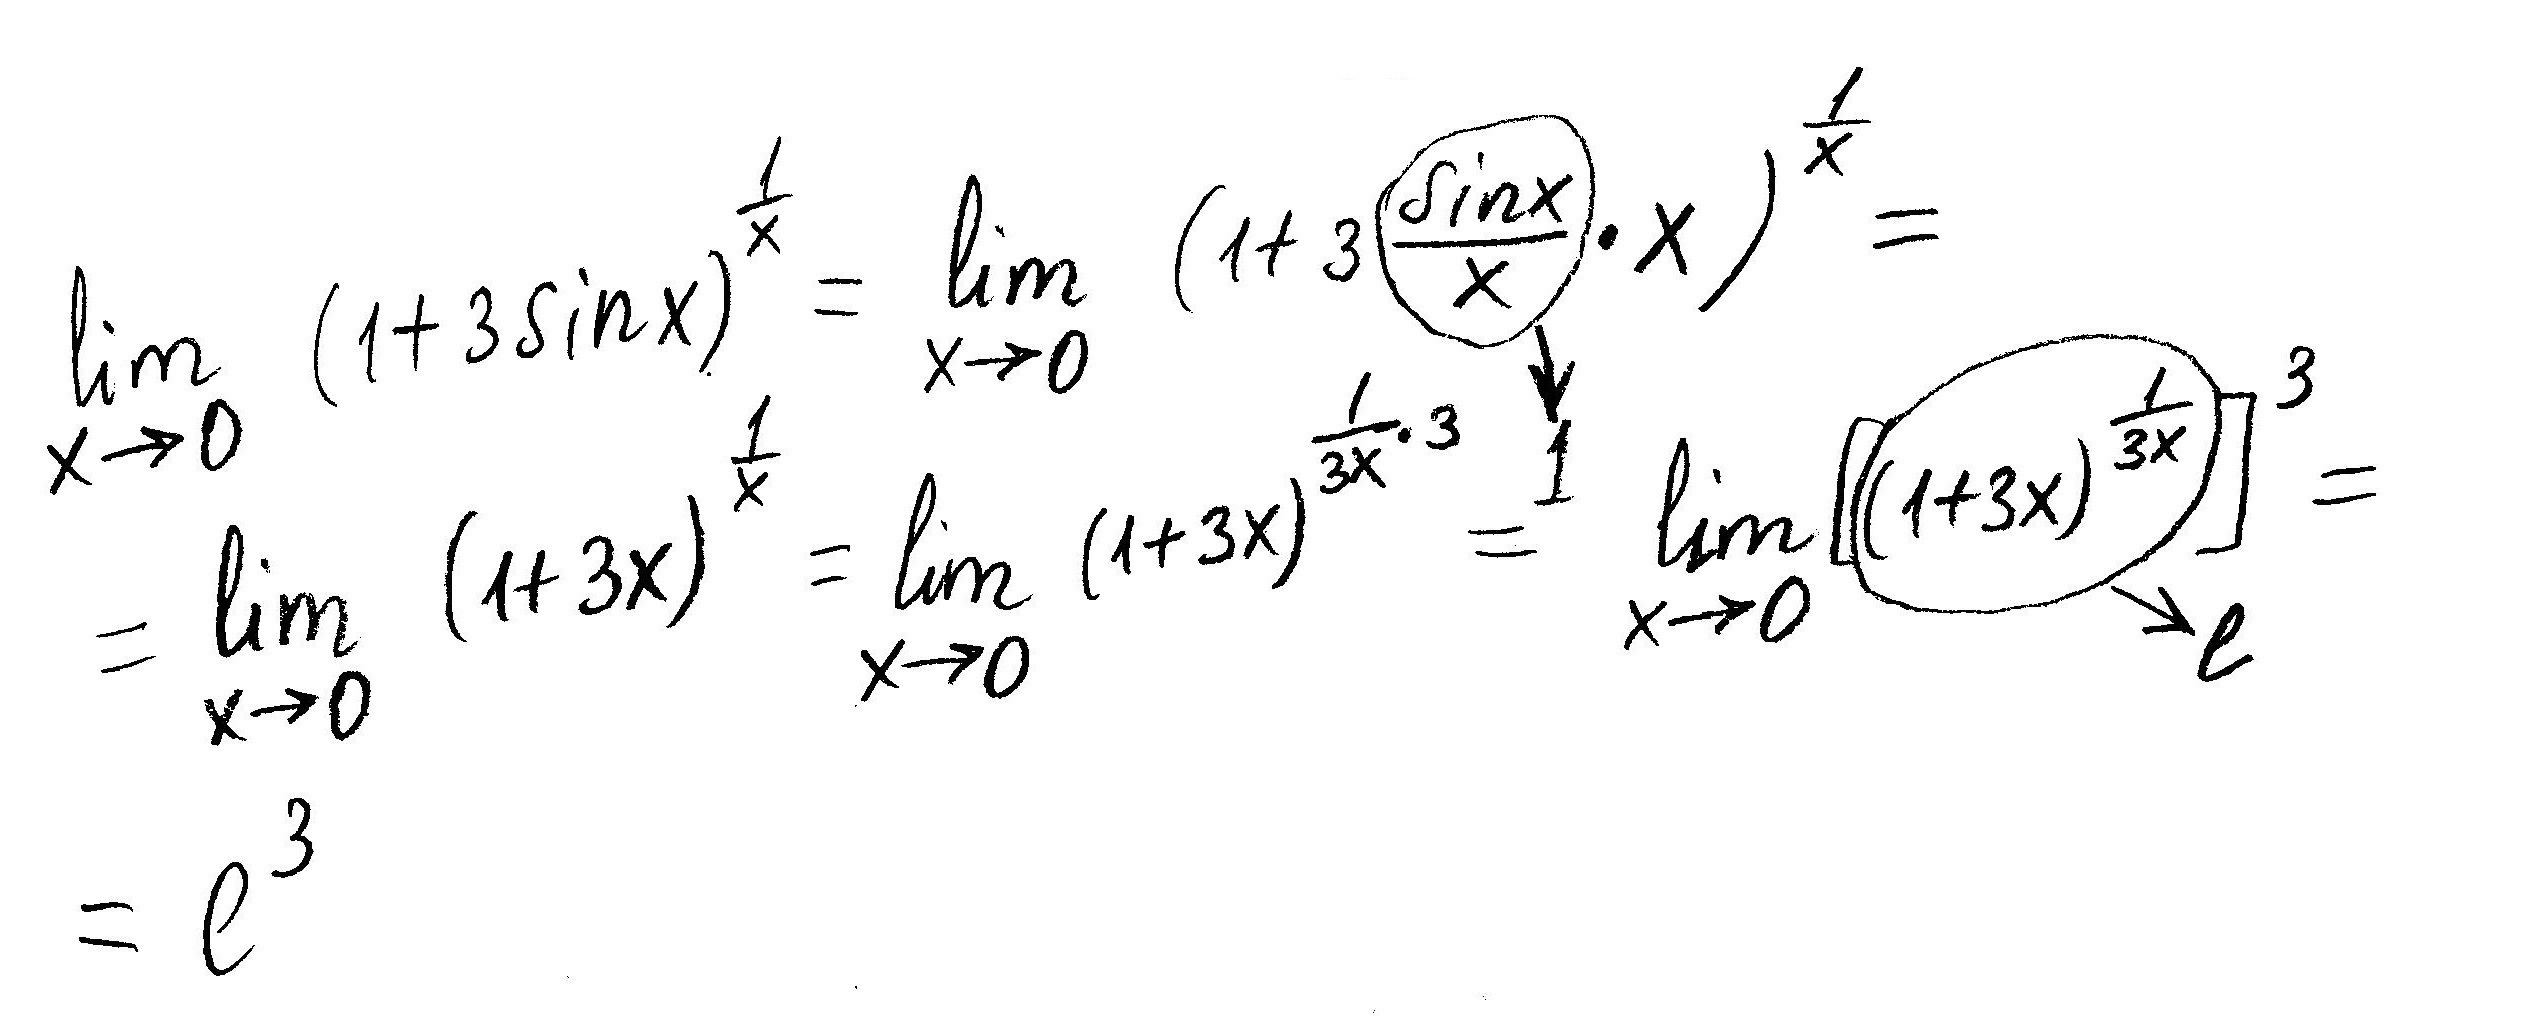 lim x→0 (1+3sinx)^(1/x) = lim x→0 (1+3 (sinx/x)·x)^(1/x) =
↓ 1
= lim x→0 (1+3x)^(1/x) = lim x→0 (1+3x)^(1/(3x)·3) = lim x→0 [(1+3x)^(1/(3x))]^3 =
→ e
= e^3